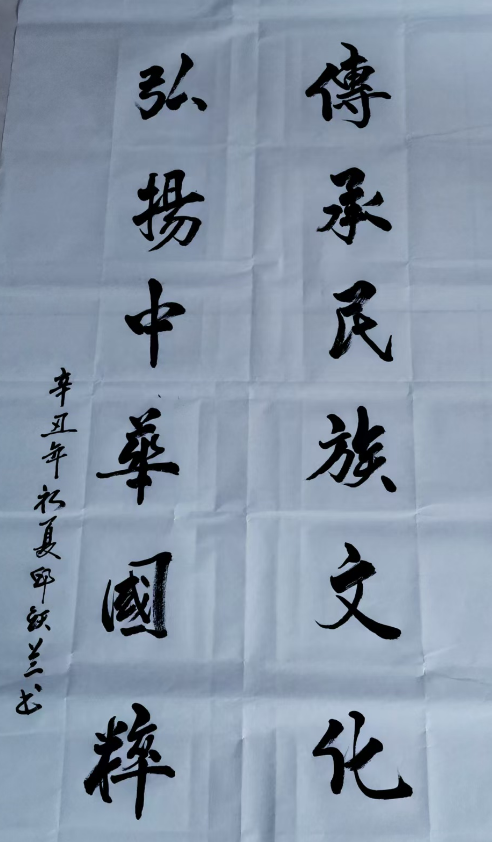 傳承民族文化
弘揚中華國粹
辛丑年初夏 兰书